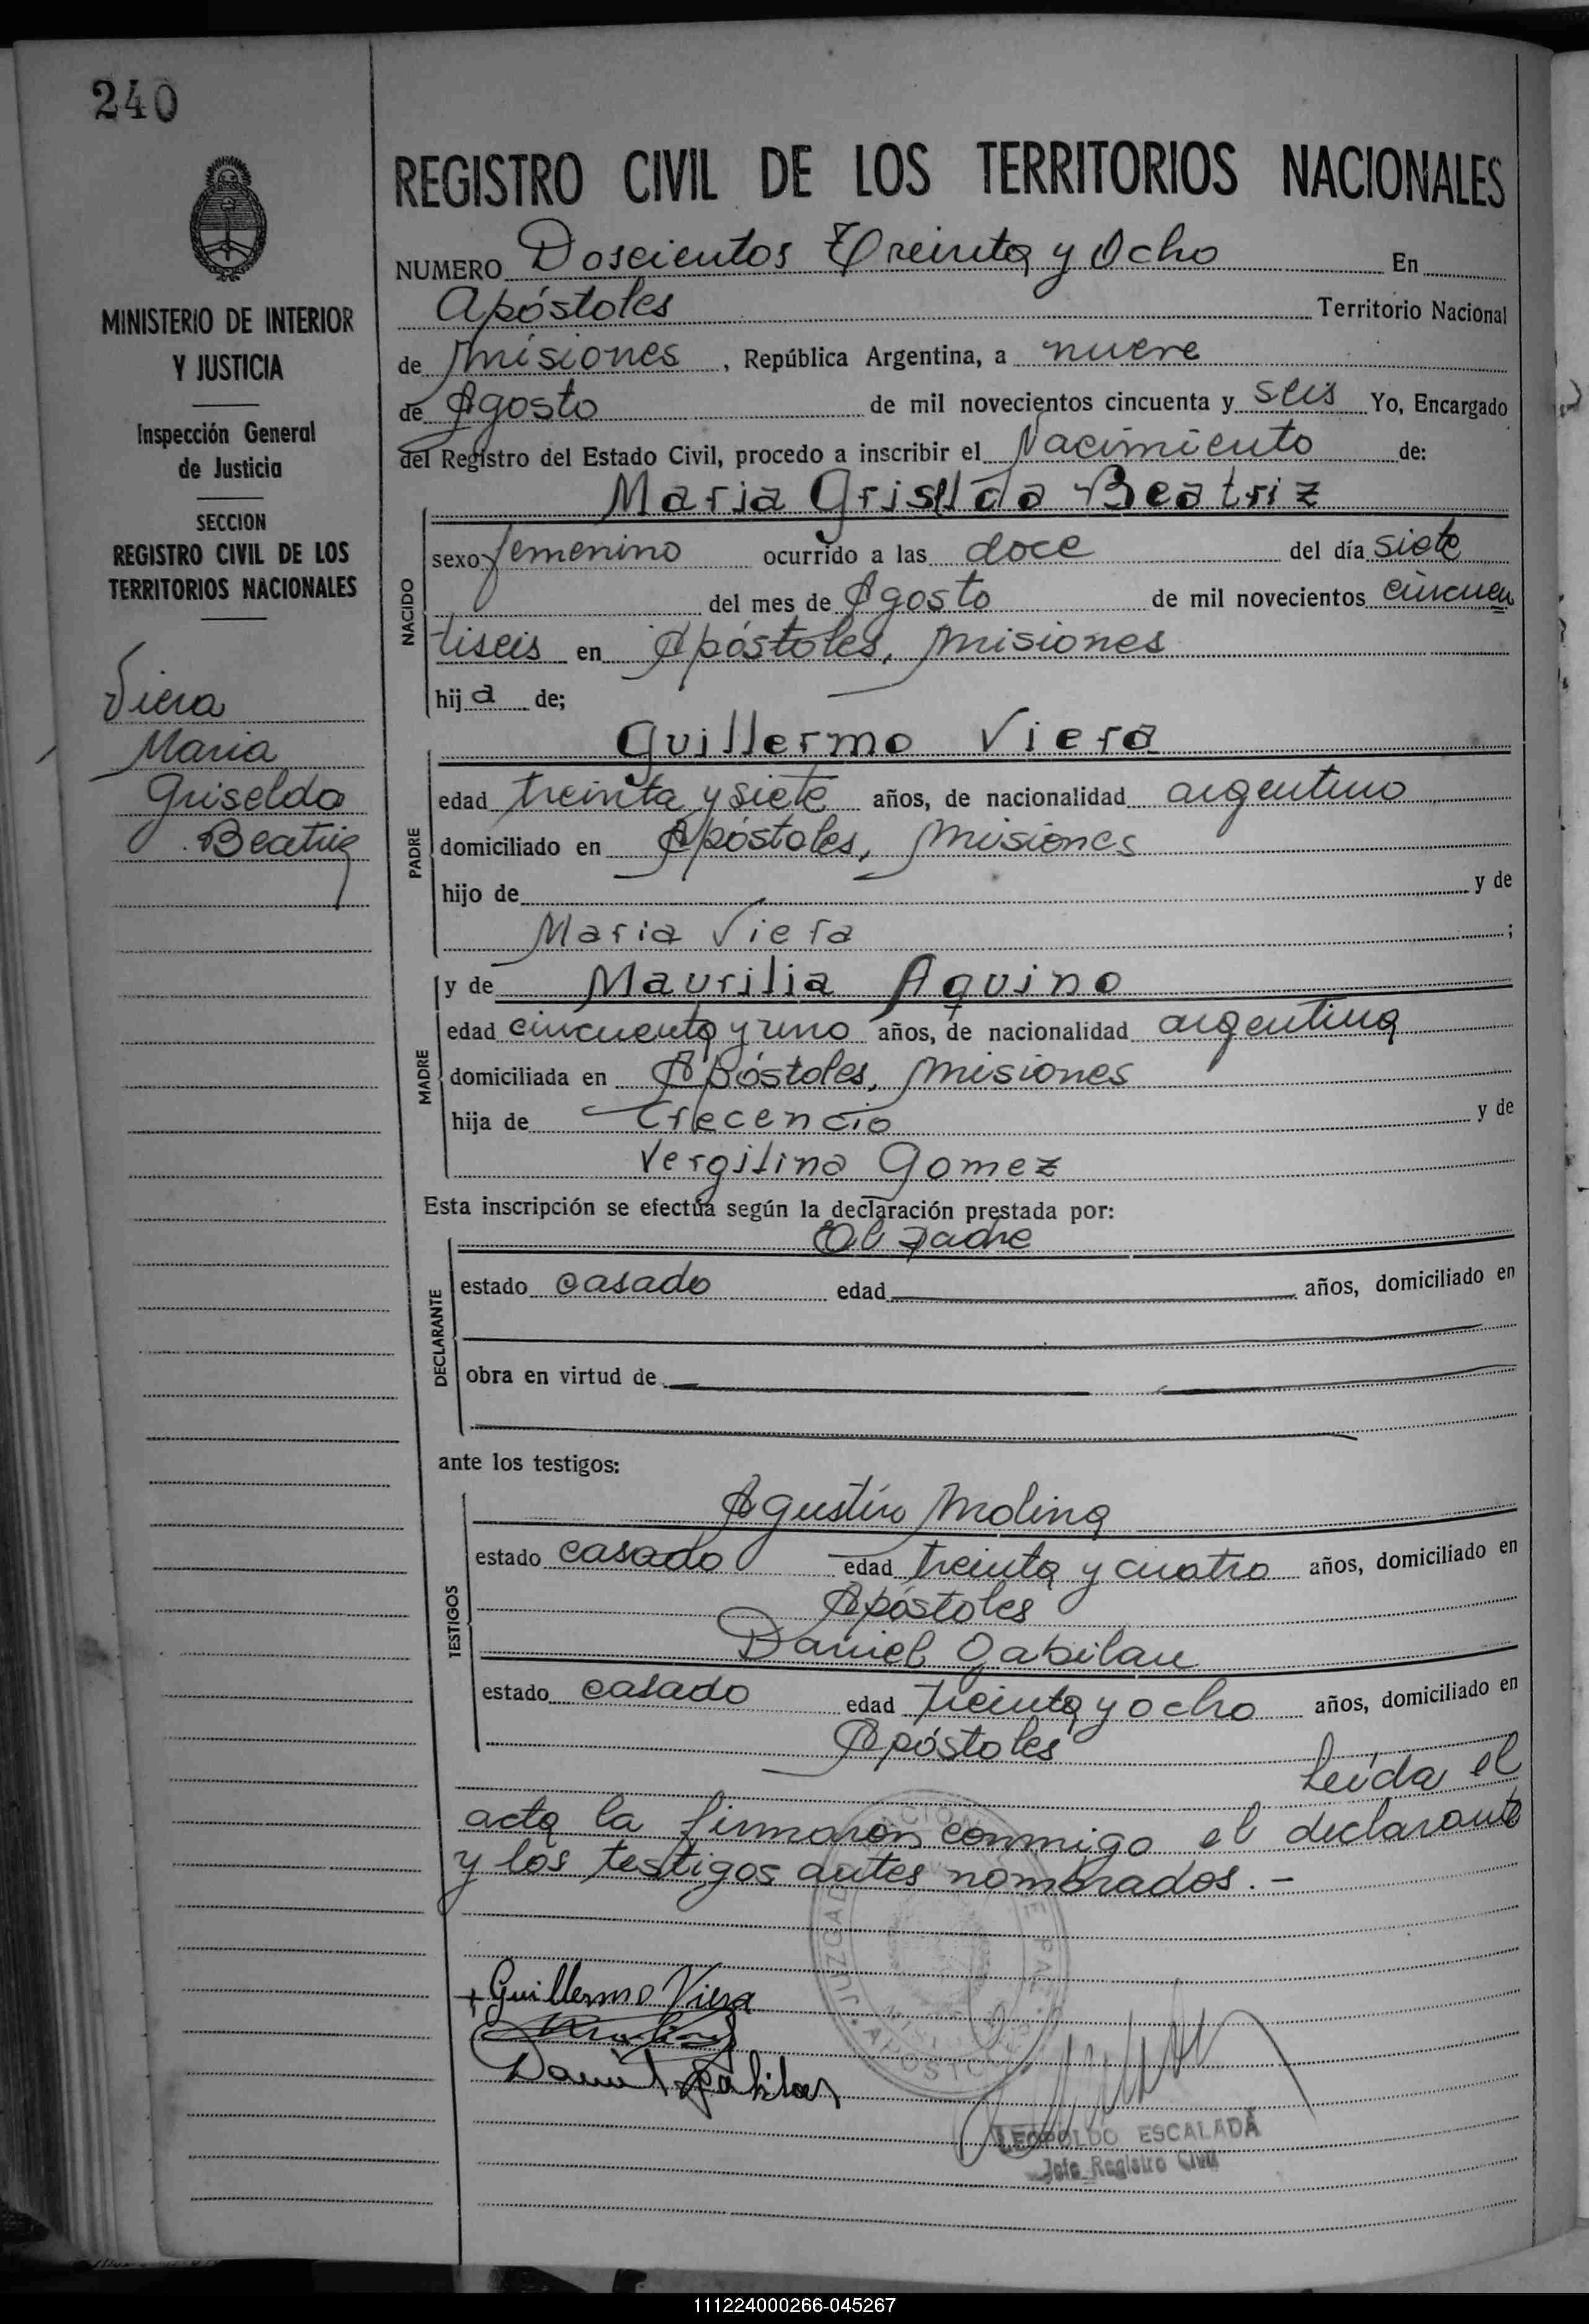 240
MINISTERIO DE INTERIOR
Y JUSTICIA
Inspección General
de Justicia
SECCION
REGISTRO CIVIL DE LOS
TERRITORIOS NACIONALES
Viera
Maria
Griselda
Beatriz
REGISTRO CIVIL DE LOS TERRITORIOS NACIONALES
NUMERO Doscientos Treinta y Ocho En
Apóstoles Territorio Nacional
de Misiones, República Argentina, a nueve
de Agosto de mil novecientos cincuenta y seis Yo, Encargado
del Registro del Estado Civil, procedo a inscribir el Nacimiento de:
Maria Griselda Beatriz
NACIDO
sexo femenino ocurrido a las doce del día siete
del mes de Agosto de mil novecientos cincuen
tiseis en Apóstoles, Misiones
hija de;
Guillermo Viera
PADRE
edad treinta y siete años, de nacionalidad argentino
domiciliado en Apóstoles, Misiones
hijo de y de
Maria Viera ;
y de Maurilia Aquino
MADRE
edad cincuenta y uno años, de nacionalidad argentina
domiciliada en Apóstoles, Misiones
hija de Crecencio y de
Vergilina Gomez
Esta inscripción se efectúa según la declaración prestada por:
El Padre
DECLARANTE
estado casado edad años, domiciliado en
obra en virtud de
ante los testigos:
Agustín Molina
TESTIGOS
estado casado edad treinta y cuatro años, domiciliado en
Apóstoles
Daniel Gabilan
estado casado edad treinta y ocho años, domiciliado en
Apóstoles
Leída el
acta la firmaron conmigo el declarante
y los testigos antes nombrados.-
+ Guillermo Viera
Daniel Gabilan
LEOPOLDO ESCALADA
Jefe Registro Civil
111224000266-045267